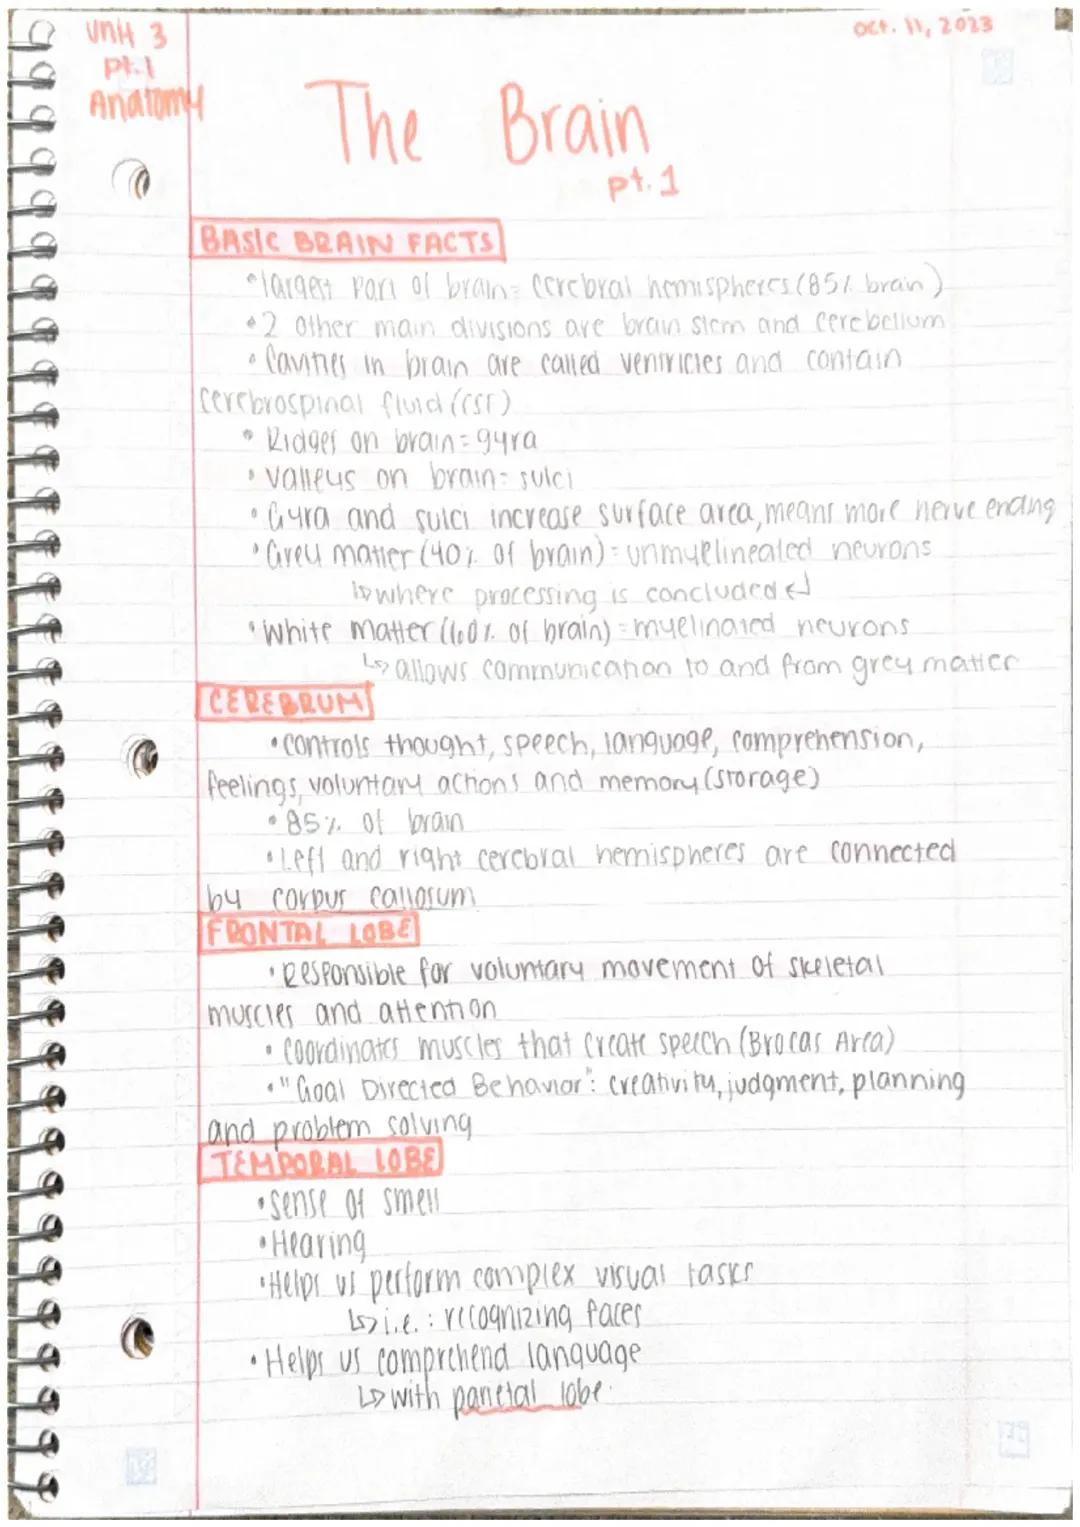 Unit 3
Oct. 11, 2023
pt.1
Anatomy
The Brain
pt. 1
BASIC BRAIN FACTS
•largest part of brain= cerebral hemispheres (85% brain)
•2 other main divisions are brain stem and cerebellum
•Cavities in brain are called ventricles and contain
cerebrospinal fluid (CSF)
•Ridges on brain=gyra
•valleys on brain= sulci
•Gyra and sulci increase surface area, means more nerve ending
•Grey matter (40% of brain)=unmyelineated neurons
↳where processing is concluded↵
•White matter (60% of brain)=myelinated neurons
↳allows communication to and from grey matter
CEREBRUM
•controls thought, speech, language, comprehension,
feelings, voluntary actions and memory (storage)
•85% of brain
•Left and right cerebral hemispheres are connected
by corpus callosum
FRONTAL LOBE
•Responsible for voluntary movement of skeletal
muscles and attention
•Coordinates muscles that create speech (Brocas Area)
•"Goal Directed Behavior": creativity, judgment, planning
and problem solving
TEMPORAL LOBE
•sense of smell
•Hearing
•Helps us perform complex visual tasks
↳i.e.: recognizing faces
•Helps us comprehend language
↳with parietal lobe.